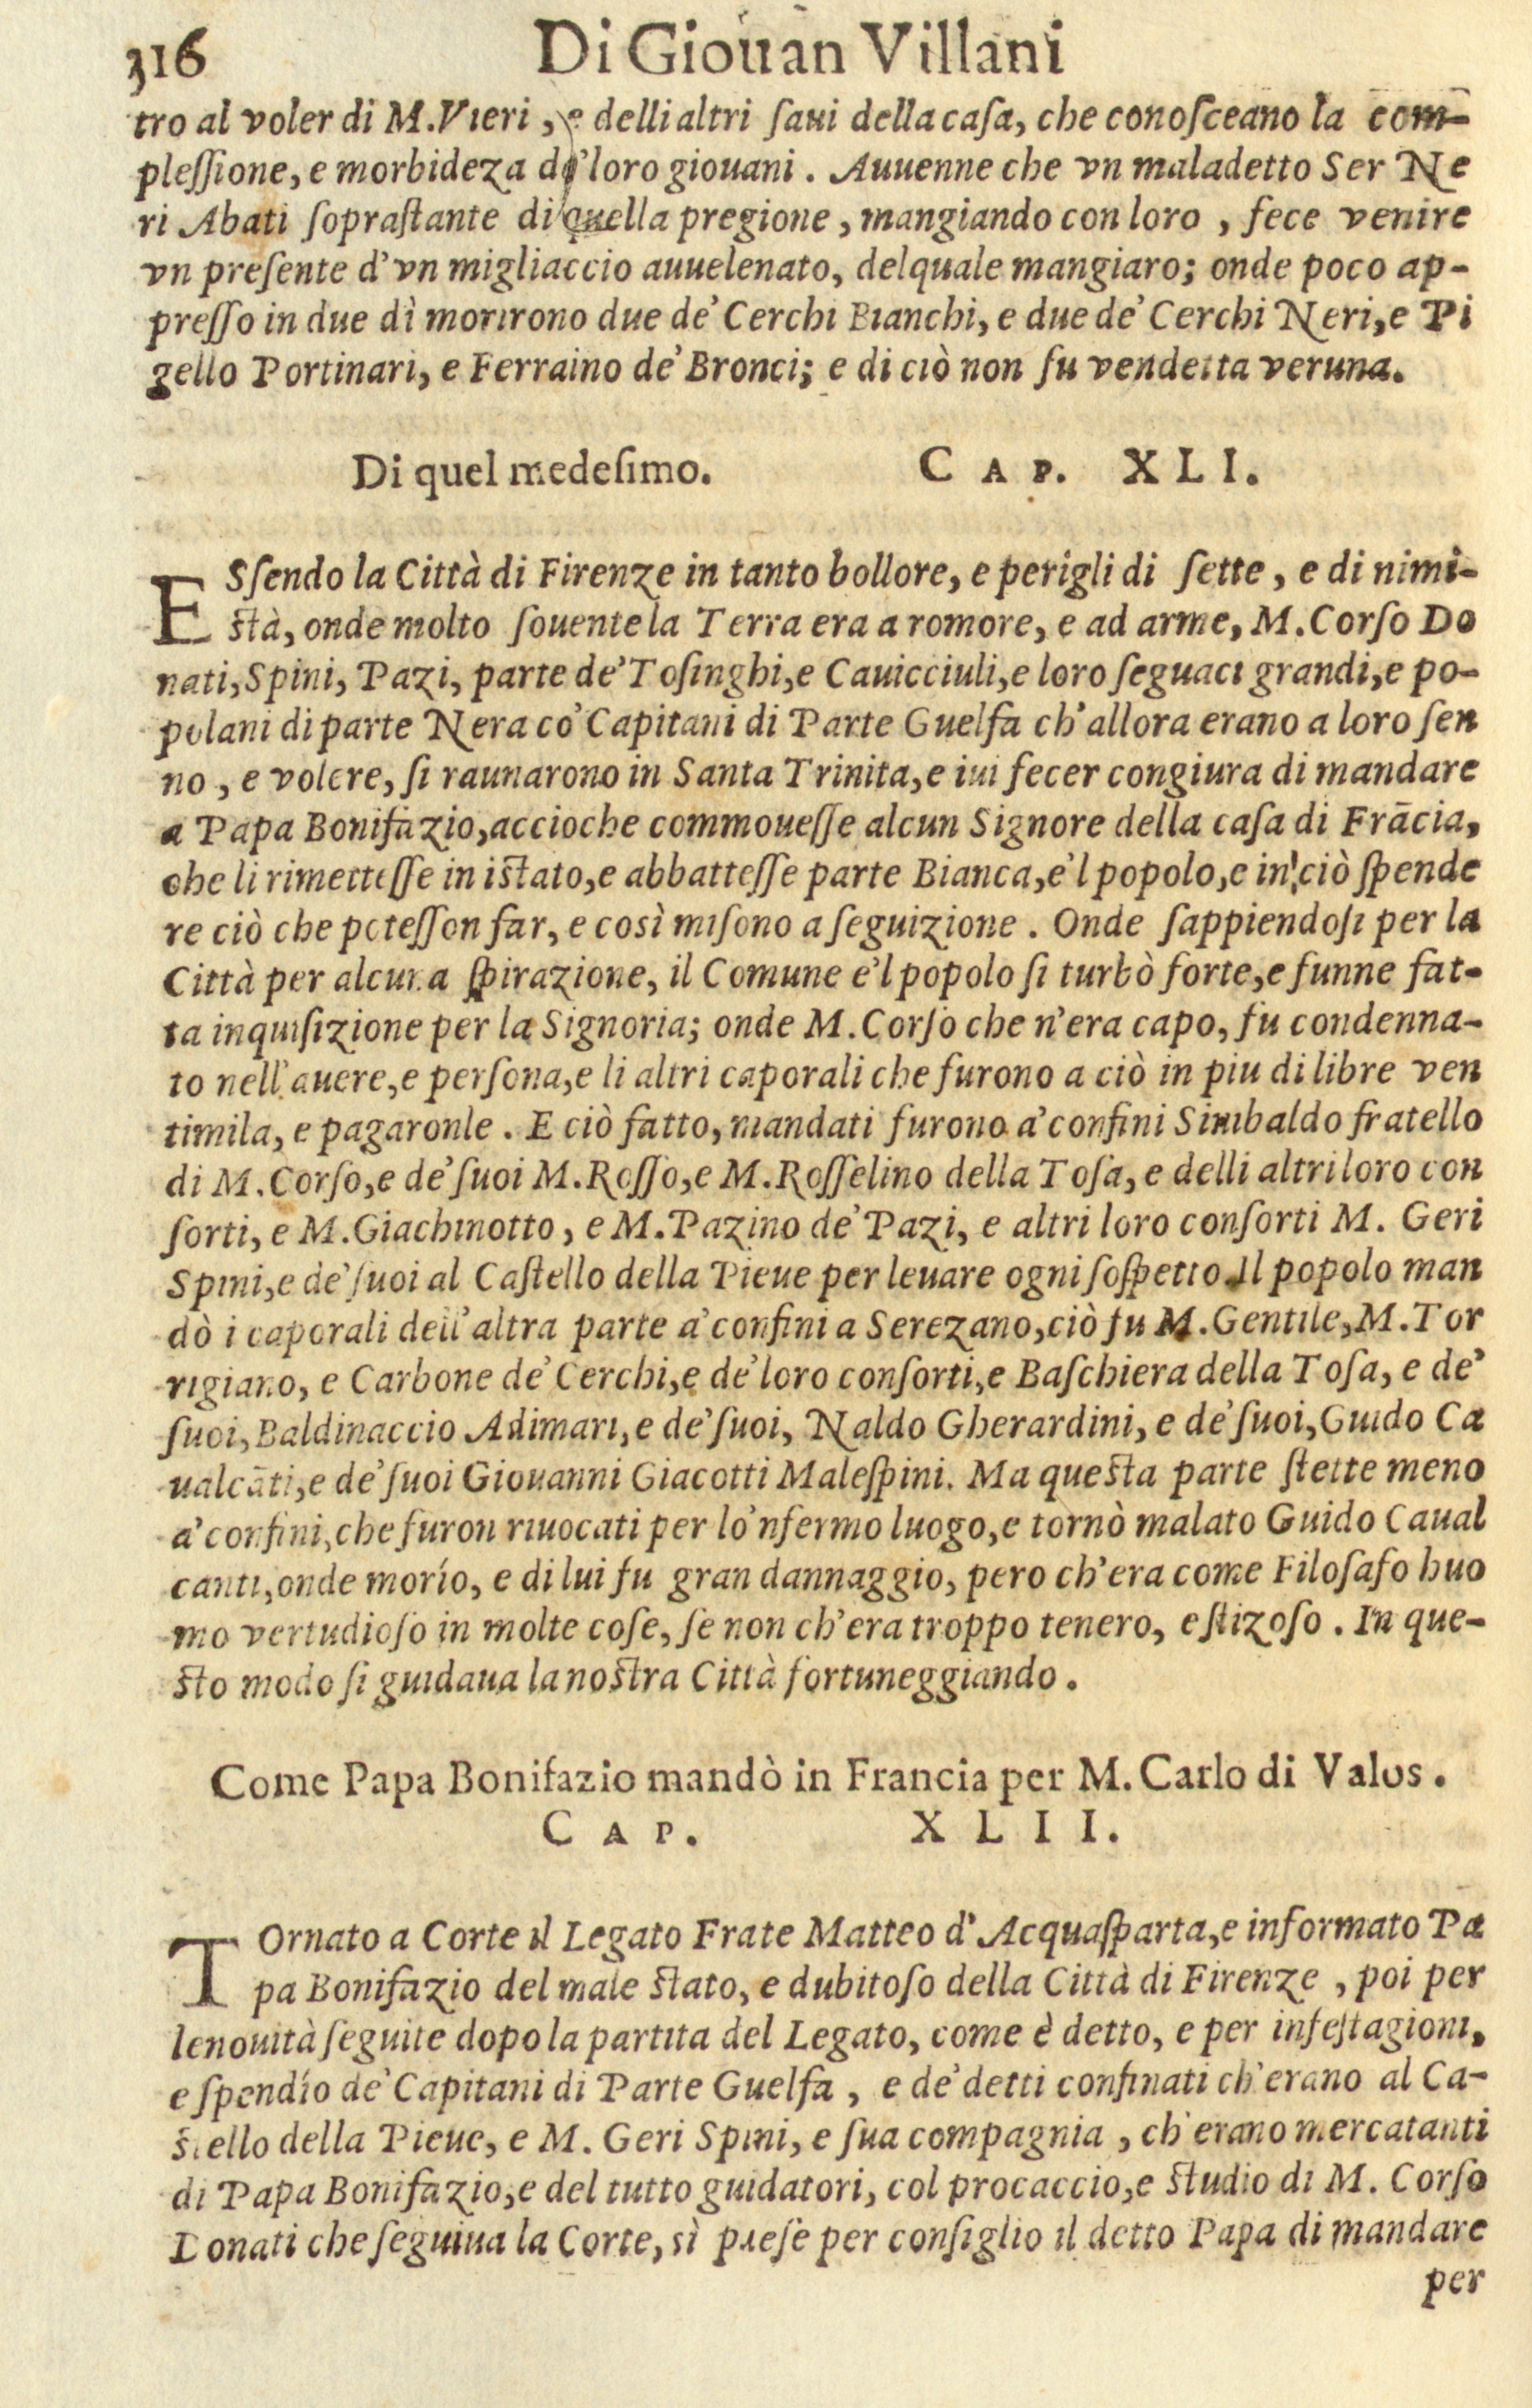 316 Di Giouan Villani
tro al voler di M.Vieri, e delli altri ſaui della caſa, che conoſceano la com-
pleſſione, e morbideza de’loro giouani. Auuenne che vn maladetto Ser Ne
ri Abati ſopraſtante di quella pregione, mangiando con loro, fece venire
vn preſente d’vn migliaccio auuelenato, delquale mangiaro; onde poco ap-
preſſo in due dì morirono due de’ Cerchi Bianchi, e due de’ Cerchi Neri,e Pi
gello Portinari, e Ferraino de’ Bronci; e di ciò non fu vendetta veruna.
Di quel medeſimo. CAP. XLI.
ESſendo la Città di Firenze in tanto bollore, e perigli di ſette, e di nimi-
ſtà, onde molto ſouente la Terra era a romore, e ad arme, M.Corſo Do
nati,Spini, Pazi, parte de’Toſinghi,e Cauicciuli,e loro ſeguaci grandi,e po-
polani di parte Nera co’ Capitani di Parte Guelfa ch’allora erano a loro ſen
no, e volere, ſi raunarono in Santa Trinita,e iui fecer congiura di mandare
a Papa Bonifazio,accioche commoueſſe alcun Signore della caſa di Frãcia,
che li rimetteſſe in iſtato,e abbatteſſe parte Bianca,e’l popolo,e in ciò ſpende
re ciò che poteſſon far, e così miſono a ſeguizione. Onde ſappiendoſi per la
Città per alcuna ſpirazione, il Comune e’l popolo ſi turbò forte,e funne fat-
ta inquiſizione per la Signoria; onde M.Corſo che n’era capo, fu condenna-
to nell’auere,e perſona,e li altri caporali che furono a ciò in piu di libre ven
timila, e pagaronle. E ciò fatto, mandati furono a’confini Simbaldo fratello
di M.Corſo,e de’ſuoi M.Roſſo,e M.Roſſelino della Toſa, e delli altri loro con
ſorti, e M.Giachinotto, e M.Pazino de’ Pazi, e altri loro conſorti M. Geri
Spini,e de’ſuoi al Caſtello della Pieue per leuare ogni ſoſpetto.Il popolo man
dò i caporali dell’altra parte a’confini a Serezano,ciò fu M.Gentile,M.Tor
rigiano, e Carbone de’ Cerchi,e de’loro conſorti,e Baſchiera della Toſa, e de’
ſuoi,Baldinaccio Adimari,e de’ſuoi, Naldo Gherardini, e de’ſuoi,Guido Ca
ualcãti,e de’ſuoi Giouanni Giacotti Maleſpini. Ma queſta parte ſtette meno
a’confini,che furon riuocati per lo’nfermo luogo,e tornò malato Guido Caual
canti,onde morío, e di lui fu gran dannaggio, pero ch’era come Filoſafo huo
mo vertudioſo in molte coſe, ſe non ch’era troppo tenero, e ſtizoſo. In que-
ſto modo ſi guidaua la noſtra Città fortuneggiando.
Come Papa Bonifazio mandò in Francia per M. Carlo di Valos.
CAP. XLII.
TOrnato a Corte il Legato Frate Matteo d’Acquaſparta,e informato Pa
pa Bonifazio del male ſtato, e dubitoſo della Città di Firenze, poi per
le nouità ſeguite dopo la partita del Legato, come è detto, e per infeſtagioni,
e ſpendío de’Capitani di Parte Guelfa, e de’detti confinati ch’erano al Ca-
ſtello della Pieue, e M. Geri Spini, e ſua compagnia, ch’erano mercatanti
di Papa Bonifazio,e del tutto guidatori, col procaccio,e ſtudio di M. Corſo
Donati che ſeguiua la Corte, sì preſe per conſiglio il detto Papa di mandare
per